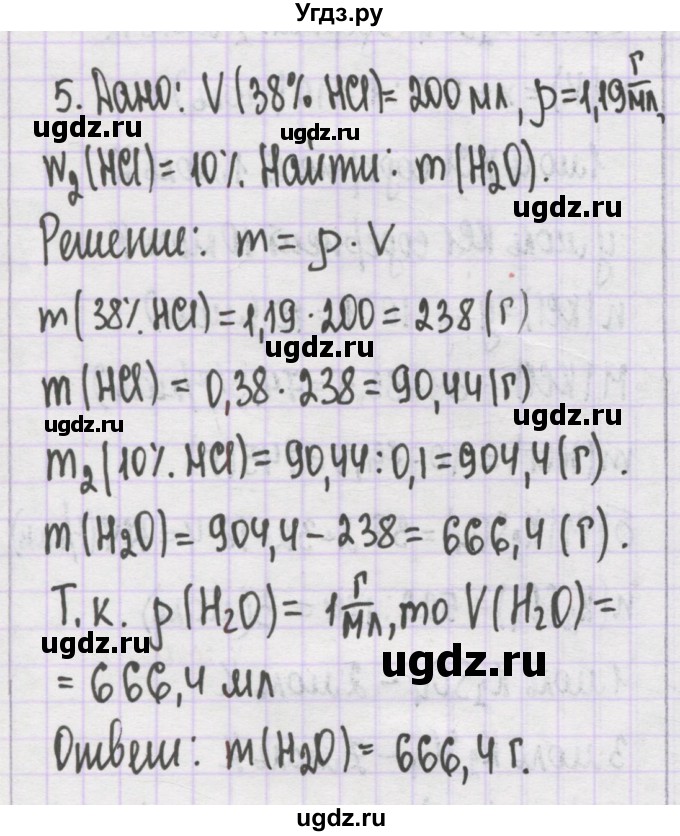 Угдз.ру
5. Дано: V(38% HCl)= 200 мл, ρ=1,19 г/мл,
ugdz.ru ugdz.ru
W₂(HCl)=10%. Найти: m(H₂O).
ugdz.ru
Решение: m = ρ · V
ugdz.ru
m(38% HCl)=1,19·200=238(г)
ugdz.ru
m(HCl)=0,38·238=90,44(г)
ugdz.ru ugdz.ru
m₂(10%. HCl)=90,44:0,1=904,4(г).
ugdz.ru
m(H₂O)=904,4-238=666,4(г).
ugdz.ru
Т.к. ρ(H₂O)=1 г/мл, то V(H₂O)=
ugdz.ru ugdz.ru
=666,4 мл
ugdz.ru
Ответ: m(H₂O)=666,4г.
ugdz.ru
ugdz.ru